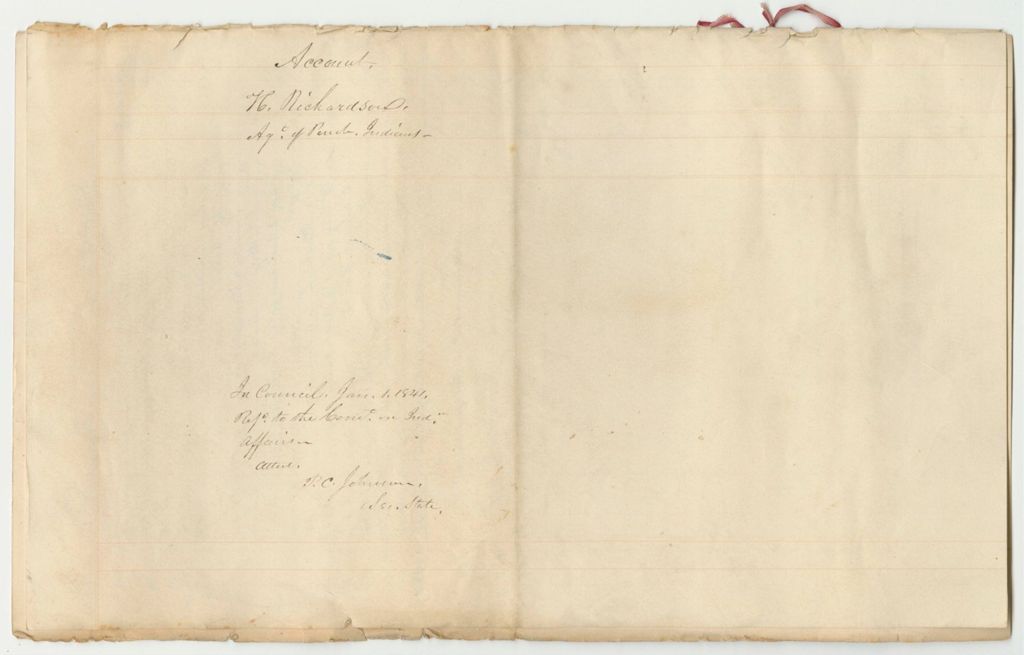 Account.
H. Richardson.
Agt. of Penob. Indians—
In Council, Jan. 1, 1841.
Refd. to the Comt. on Indn.
affairs—
attest.
P. C. Johnson,
Sec. State.